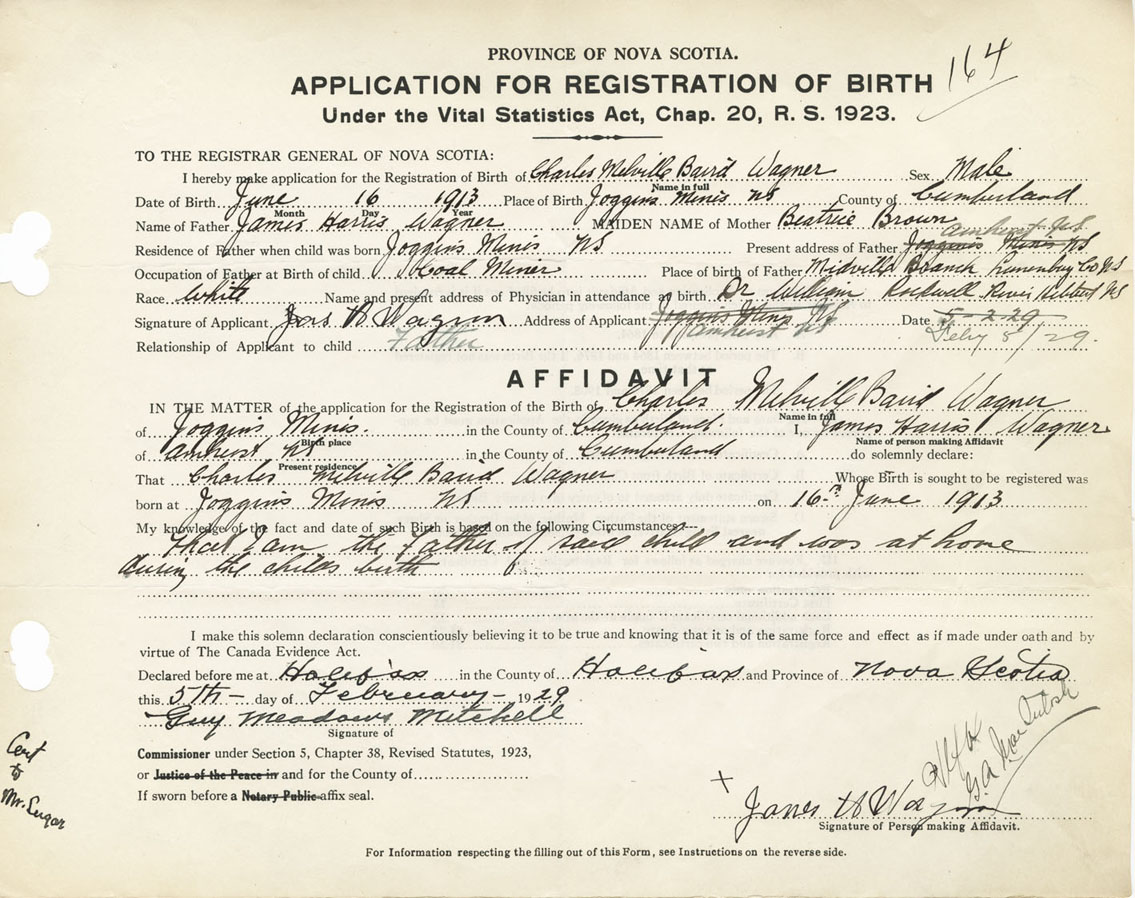 PROVINCE OF NOVA SCOTIA.
164
APPLICATION FOR REGISTRATION OF BIRTH
Under the Vital Statistics Act, Chap. 20, R. S. 1923.
TO THE REGISTRAR GENERAL OF NOVA SCOTIA:
I hereby make application for the Registration of Birth of Charles Melville Baird Wagner Sex Male
Name in full
Date of Birth June 16 1913 Place of Birth Joggins Mines NS County of Cumberland
Month Day Year
Name of Father James Harris Wagner MAIDEN NAME of Mother Beatrice Brown
Amherst N.S.
Residence of Father when child was born Joggins Mines NS Present address of Father Joggins Mines NS
Occupation of Father at Birth of child Coal Miner Place of birth of Father Midville Branch Lunenburg Co NS
Race White Name and present address of Physician in attendance at birth Dr William Rockwell River Hebert NS
Signature of Applicant Jas H Wagner Address of Applicant Joggins Mines NS Date 5-2-29
Amherst NS Feby 5/29.
Relationship of Applicant to child Father
AFFIDAVIT
IN THE MATTER of the application for the Registration of the Birth of Charles Melvill Baird Wagner
Name in full
of Joggins Mines. in the County of Cumberland. I, James Harris Wagner
Birth place Name of person making Affidavit
of Amherst NS in the County of Cumberland do solemnly declare:
Present residence
That Charles Melville Baird Wagner Whose Birth is sought to be registered was
born at Joggins Mines NS on 16th June 1913
My knowledge of the fact and date of such Birth is based on the following Circumstances:—
that I am the Father of said child and was at home
during the childs birth
I make this solemn declaration conscientiously believing it to be true and knowing that it is of the same force and effect as if made under oath and by
virtue of The Canada Evidence Act.
Declared before me at Halifax in the County of Halifax and Province of Nova Scotia
this 5th- day of February- 1929
Guy Meadows Mitchell
Signature of
Commissioner under Section 5, Chapter 38, Revised Statutes, 1923,
or Justice of the Peace in and for the County of
If sworn before a Notary Public affix seal.
Cert
to
Mr.
G.A. MacIntosh
X James H Wagner
Signature of Person making Affidavit.
For Information respecting the filling out of this Form, see Instructions on the reverse side.